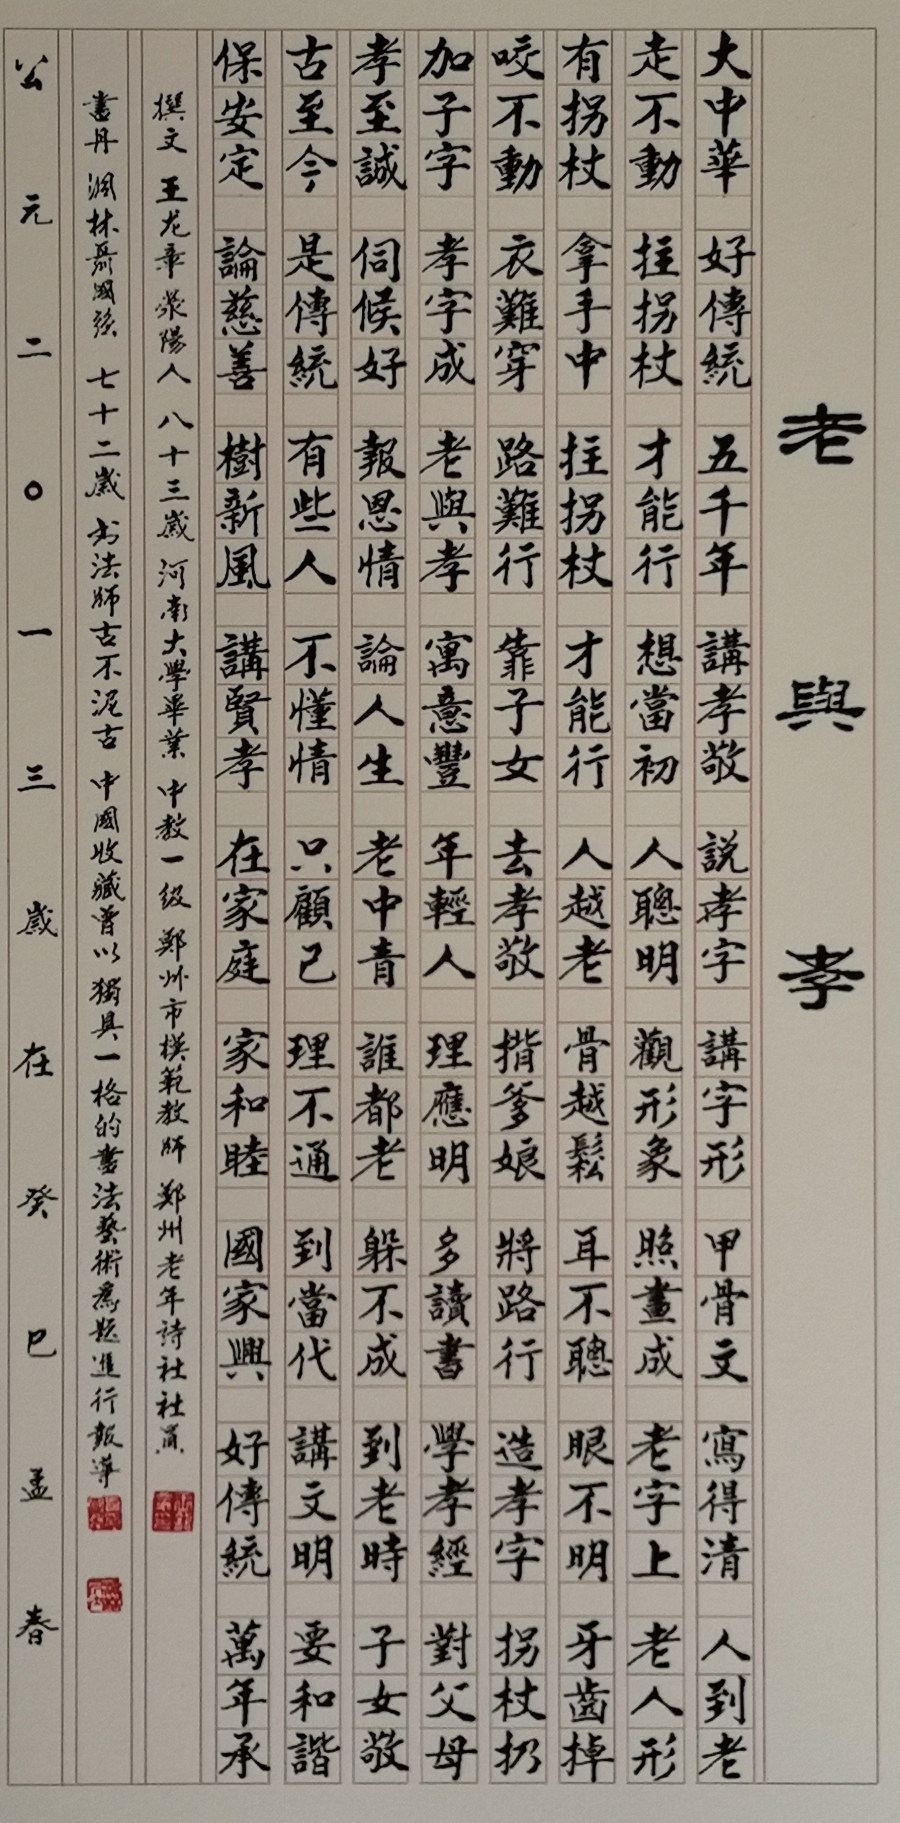 老與孝
大中華 好傳統 五千年 講孝敬 説孝字 講字形 甲骨文 寫得清 人到老
走不動 拄拐杖 才能行 想當初 人聰明 觀形象 照畫成 老字上 老人形
有拐杖 拿手中 拄拐杖 才能行 人越老 骨越鬆 耳不聰 眼不明 牙齒掉
咬不動 衣難穿 路難行 靠子女 去孝敬 揹爹娘 將路行 造孝字 拐杖扔
加子字 孝字成 老與孝 寓意豐 年輕人 理應明 多讀書 學孝經 對父母
孝至誠 伺候好 報恩情 論人生 老中青 誰都老 躲不成 到老時 子女敬
古至今 是傳統 有些人 不懂情 只顧己 理不通 到當代 講文明 要和諧
保安定 論慈善 樹新風 講賢孝 在家庭 家和睦 國家興 好傳統 萬年承
撰文 王龙章 荥陽人 八十三歲 河南大學畢業 中教一级 鄭州市模範教師 鄭州老年詩社社員
書丹 林聂國强 七十二歲 书法師古不泥古 中國收藏曾以獨具一格的書法藝術為题進行報導
公元二〇一三歲在癸巳孟春